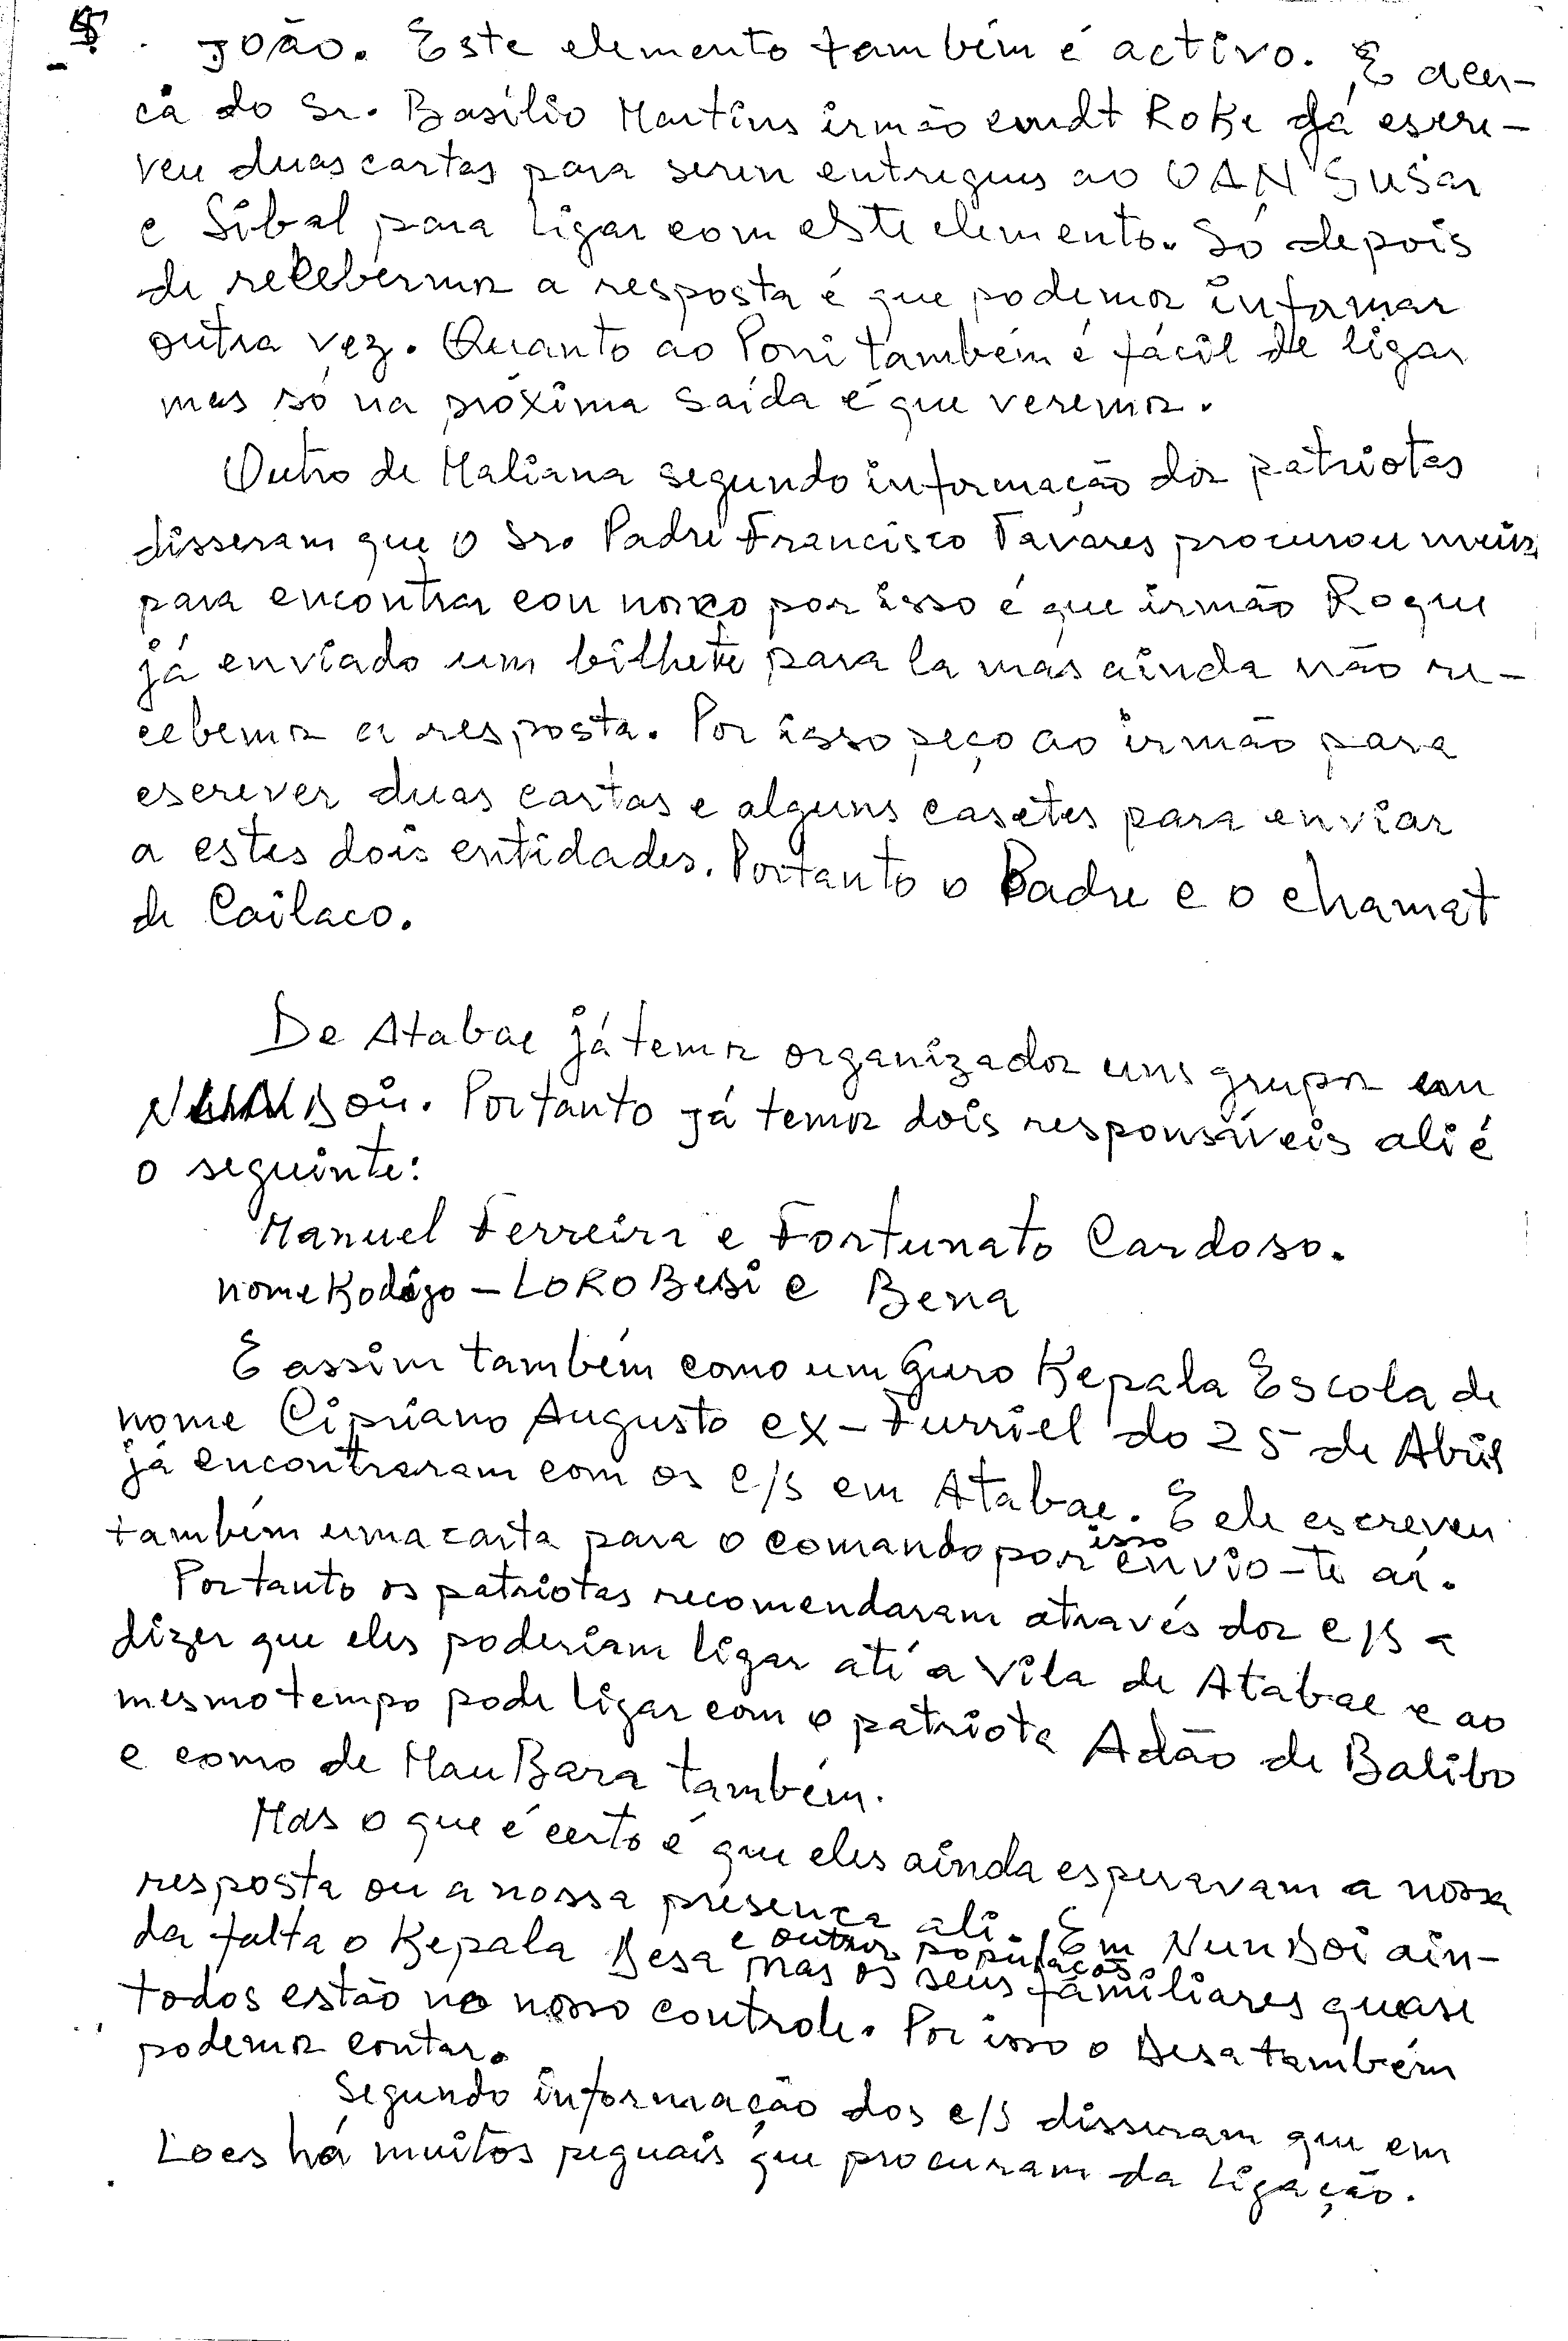 João. Este elemento também é activo. E acer-
ca do Sr. Basílio Martins irmão comdt Roke já escre-
veu duas cartas para serem entregues ao OAN Susar
e Sibal para ligar com este elemento. Só depois
de recebermos a resposta é que podemos informar
outra vez. Quanto ao Poni também é fácil de ligar
mas só na próxima saída é que veremos.
Outro de Maliana segundo informação dos patriotas
disseram que o Sr. Padre Francisco Tavares procurou meios
para encontrar con nosco por isso é que irmão Roque
já enviado um bilhete para la mas ainda não re-
cebemos a resposta. Por isso peço ao irmão para
escrever duas cartas e alguns casetes para enviar
a estes dois entidades. Portanto o Padre e o chamat
de Cailaco.
De Atabae já temos organizados uns grupos em
Boi. Portanto já temos dois responsáveis ali é
o seguinte:
Manuel Ferreira e Fortunato Cardoso.
nome Kodigo - LORO Besi e Bena
E assim também como um Guro Kepala Escola de
nome Cipriano Augusto ex-Furriel do 25 de Abril
já encontraram com os e/s em Atabae. E ele escreveu
também uma carta para o comando por isso envio-te aí.
Portanto os patriotas recomendaram através dos e/s a
dizer que eles poderiam ligar até a Vila de Atabae e ao
mesmo tempo pode ligar com o patriota Adão de Balibo
e como de MauBara também.
Mas o que é certo é que eles ainda esperavam a nossa
resposta ou a nossa presença ali. Em NunBoi ain-
da falta o Kepala Desa e outros populaços. mas os seus familiares quase
todos estão no nosso controle. Por isso o Desa também
podemos contar.
Segundo informação dos e/s disseram que em
Loes há muitos peguais que procuram da ligação.